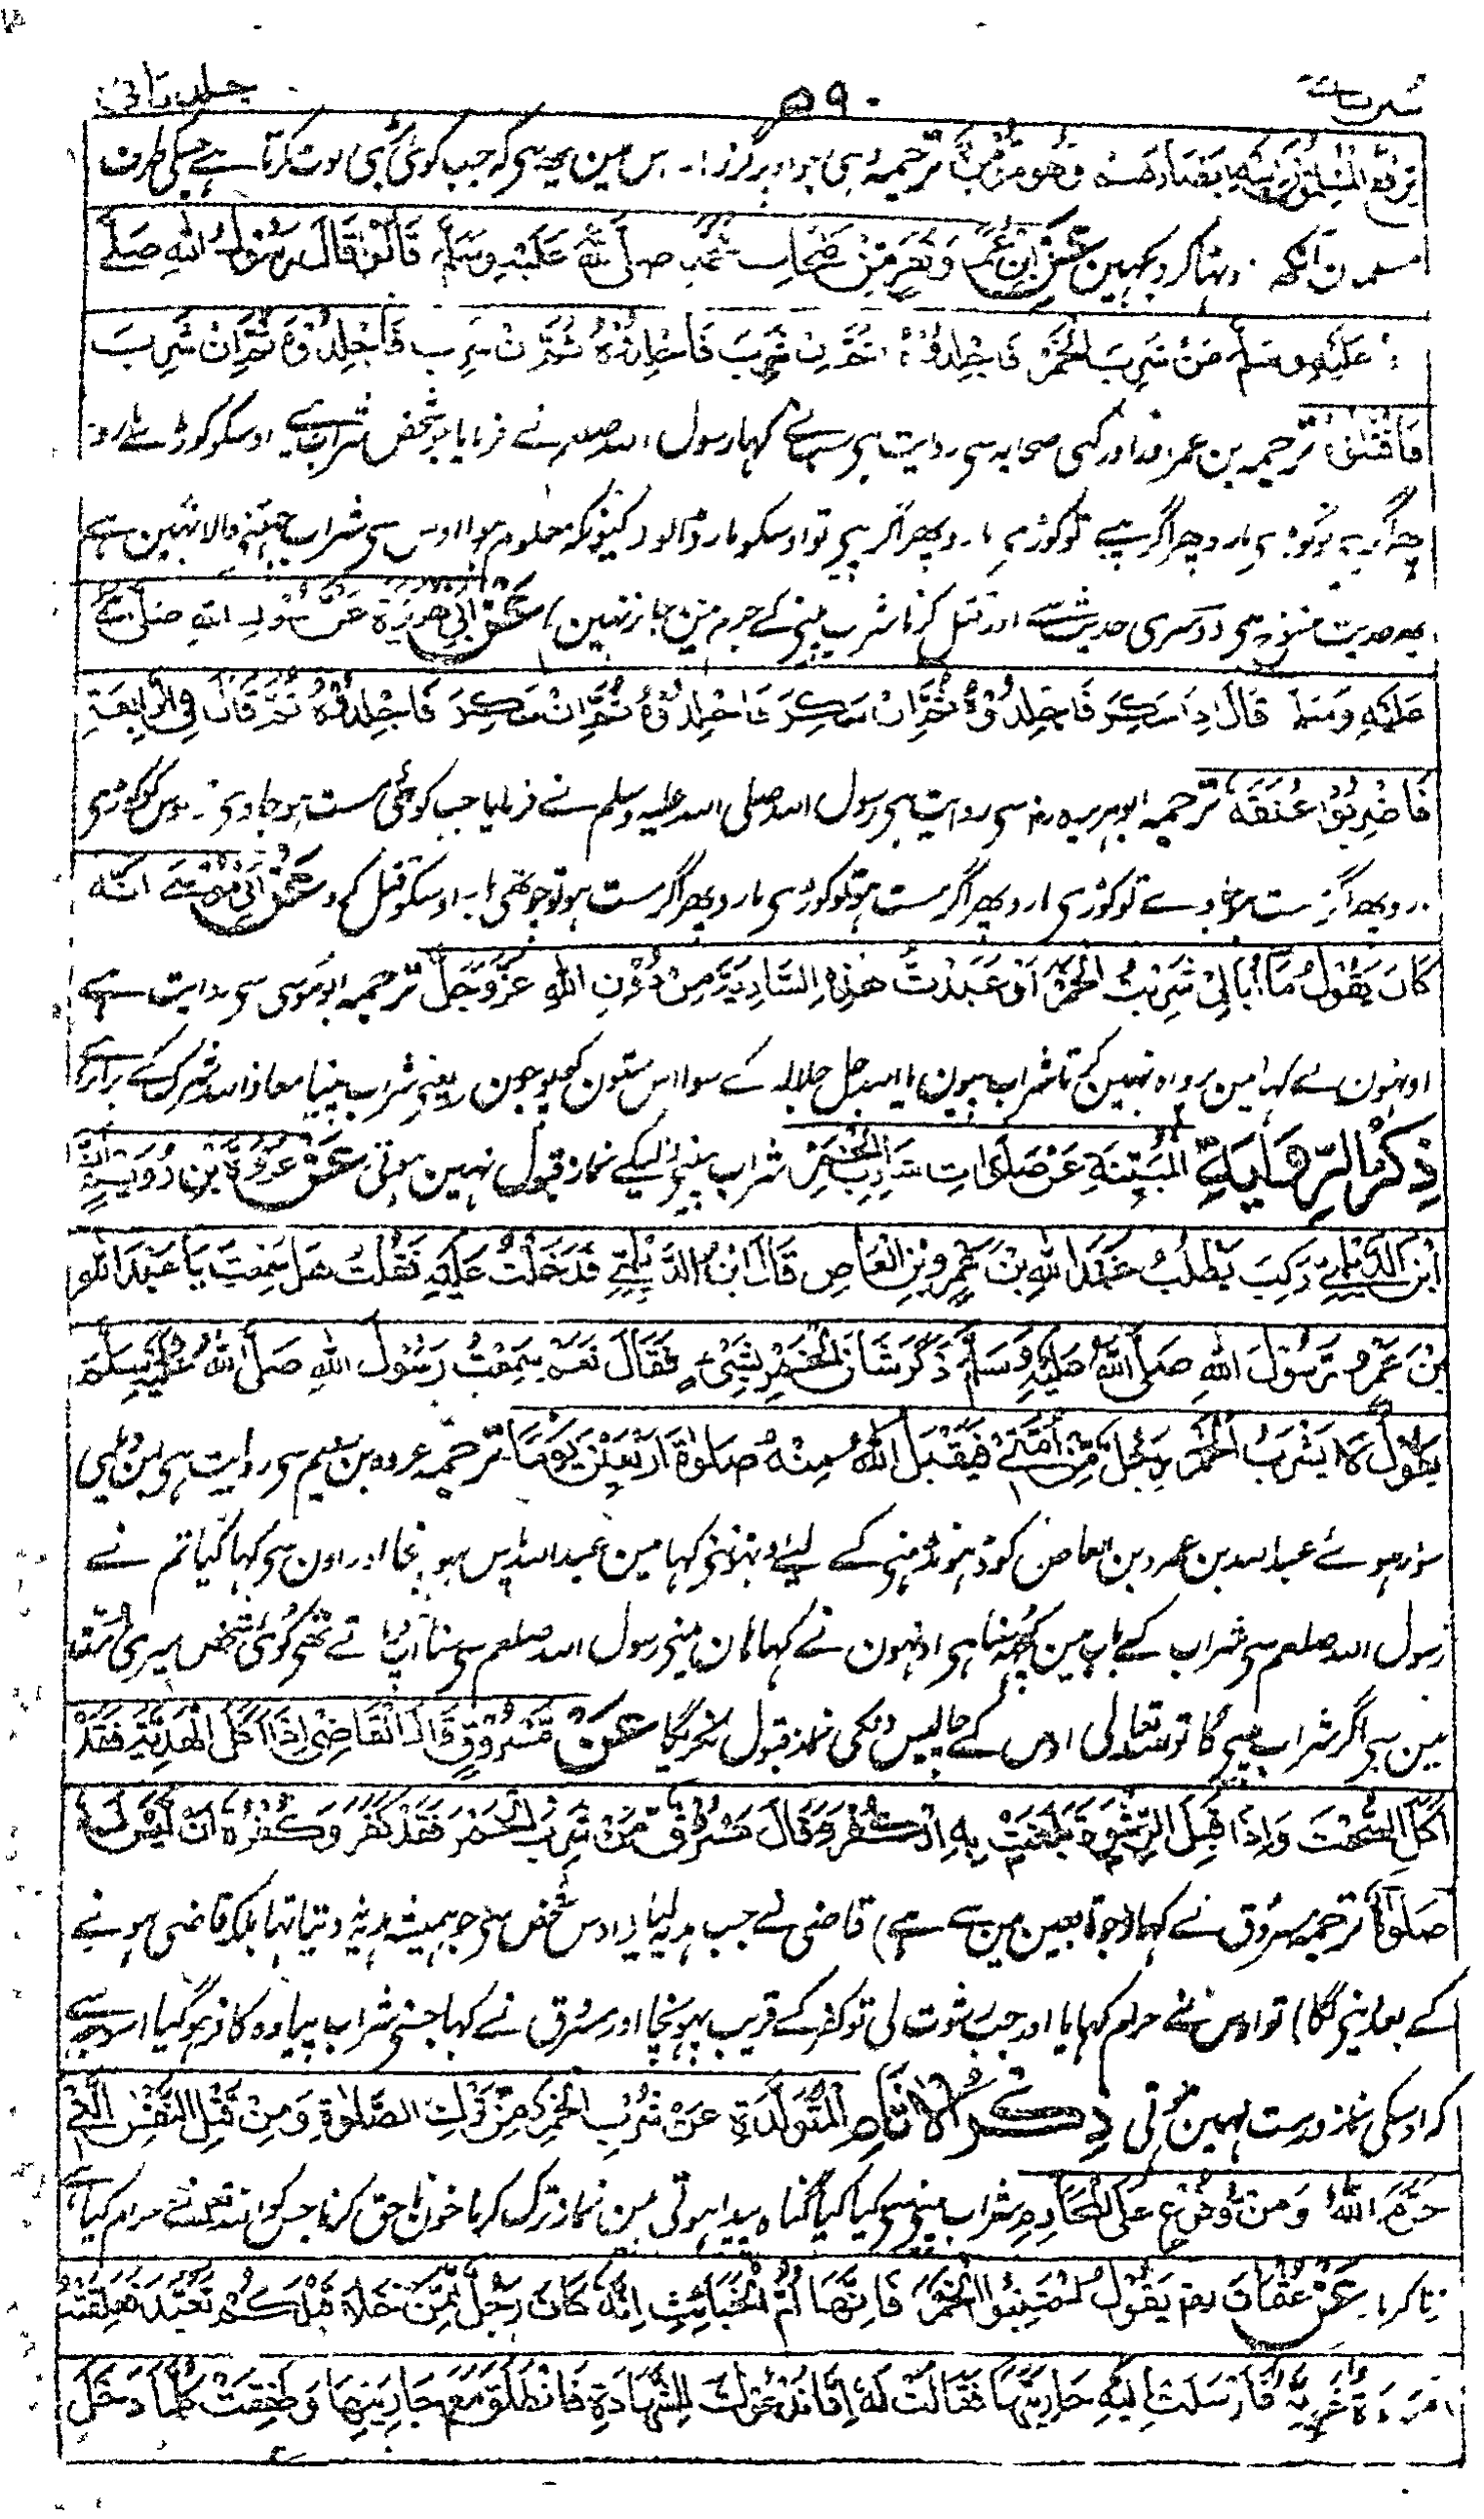 جلد ثانی ۵۹۰
المسلمون الیہ ابصارھم وھو مؤمن ترجمہ وہی جو اوپر گزرا۔ اس مین یہہ ہی کہ جب کوئی ایسی لوٹ کرتا ہے جسکی طرف
مسلمان آنکھ اوٹھا کر دیکھین عَنِ ابْنِ عُمَرَ وَنَفَرٍ مِنْ اَصْحَابِ مُحَمَّدٍ صلی اللہ عَلَیْہِ وَسَلَّمَ قَالُوْا قَالَ رَسُوْلُ اللہِ صَلَّے
عَلَیْہِ وسلم مَنْ شَرِبَ الْخَمْرَ فَاجْلِدُوْہُ ثُمَّ اِنْ شَرِبَ فَاجْلِدُوْہُ ثُمَّ اِنْ شَرِبَ فَاجْلِدُوْہُ ثُمَّ اِنْ شَرِبَ
فَاقْتُلُوْہُ ترجمہ ابن عمر اور کئی صحابہ سی روایت ہی سب نے کہا رسول اللہ صلعم نے فرمایا جو شخص شراب پیے اوسکو کوڑے مارو
پھر اگر پیے تو کوڑے مارو پھر اگر پیے تو کوڑی مارو پھر اگر پیے تو اوسکو مار ڈالو (کیونکہ معلوم ہوا اوس سی شراب چھٹنے والا نہین ہے
یہہ حدیث منسوخ ہی دوسری حدیث سے اور قتل کرنا شراب پینے کے جرم مین جائز نہین) عَنْ اَبِیْ ھُرَیْرَۃَ عَنْ رَسُوْلِ اللہِ صلی اللہ
عَلَیْہِ وَسَلَّمَ قَالَ اِذَا سَکِرَ فَاجْلِدُوْہُ ثُمَّ اِنْ سَکِرَ فَاجْلِدُوْہُ ثُمَّ اِنْ سَکِرَ فَاجْلِدُوْہُ ثُمَّ قَالَ فِی الرَّابِعَۃِ
فَاضْرِبُوْا عُنُقَہٗ ترجمہ ابو ہریرہ رض سی روایت ہی رسول اللہ صلی اللہ علیہ وسلم نے فرمایا جب کوئی مست ہو جاوی تو اوس کو کوڑی
مارو پھر اگر مست ہو جاوے تو کوڑی مارو پھر اگر مست ہو تو کوڑی مارو پھر اگر مست ہو تو چوتھی بار اوسکو قتل کرو عَنْ اَبِیْ مُوْسٰی اَنَّہٗ
کَانَ یَقُوْلُ مَا اُبَالِیْ شَرِبْتُ الْخَمْرَ اَوْ عَبَدْتُ ھٰذِہِ السَّارِیَۃَ مِنْ دُوْنِ اللہِ عَزَّوَجَلَّ ترجمہ ابو موسی سی روایت ہے
اونہون نے کہا مین پرواہ نہین کرتا شراب پیون یا اللہ جل جلالہ کے سوا اس ستون کو پوجون (یعنی شراب پینا معاذ اللہ شرک کے برابر ہے
ذِکْرُ الرِّوَایَۃِ الْمُبَیِّنَۃِ عَنْ صَلَوٰاتِ شَارِبِ الْخَمْرِ شراب پینے والیکی نماز قبول نہین ہوتی عَنْ عُرْوَۃَ بْنِ رُوَیْمٍ اَنَّ
اِبْنَ الدَّیْلَمِیِّ رَکِبَ یَطْلُبُ عَبْدَ اللہِ بْنَ عَمْرِو بْنِ الْعَاصِ قَالَ ابْنُ الدَّیْلَمِیِّ فَدَخَلْتُ عَلَیْہِ فَقُلْتُ ھَلْ سَمِعْتَ یَا عَبْدَ اللہِ
بْنَ عَمْرٍو رَسُوْلَ اللہِ صَلَّی اللہُ عَلَیْہِ وَسَلَّمَ ذَکَرَ شَانَ الْخَمْرِ بِشَیْءٍ فَقَالَ نَعَمْ سَمِعْتُ رَسُوْلَ اللہِ صَلَّی اللہُ عَلَیْہِ وَسَلَّمَ
یَقُوْلُ لَا یَشْرَبُ الْخَمْرَ رَجُلٌ مِّنْ اُمَّتِیْ فَیَقْبَلُ اللہُ مِنْہُ صَلٰوۃَ اَرْبَعِیْنَ یَوْمًا ترجمہ عروہ بن رویم سی روایت ہی ابن دیلمی
سوار ہوئے عبد اللہ بن عمرو بن العاص کو ڈہونڈہنی کے لیے اونہونی کہا مین عبد اللہ پاس پہونچا اور اون سی کہا کیا تم نے
رسول اللہ صلعم سی شراب کے باب مین کچھ سنا ہی اونہون نے کہا ہان مینی رسول اللہ صلعم سی سنا آپ فرماتے تھی کوئی شخص میری امت
مین سی اگر شراب پییگا تو اللہ تعالی اوس کے چالیس دن کی نماز قبول نکریگا عَنْ مَسْرُوْقٍ قَالَ الْقَاضِیْ اِذَا اَکَلَ الْھَدِیَّۃَ فَقَدْ
اَکَلَ السُّحْتَ وَاِذَا قَبِلَ الرِّشْوَۃَ بَلَغَتْ بِہِ الْکُفْرَ وَقَالَ مَسْرُوْقٌ مَنْ شَرِبَ الْخَمْرَ فَقَدْ کَفَرَ وَکُفْرُہٗ اَنْ لَیْسَ لَہٗ
صَلٰوۃٌ ترجمہ مسروق نے کہا (جو تابعین مین سے ہے) قاضی نے جب ہدیہ لیا (اوس شخص سے جو ہمیشہ ہدیہ نہ دیتا تہا بلکہ قاضی ہونے
کے بعد دینی لگا) تو اوس نے حرام کہایا اور جب رشوت لی تو کفر کے قریب پہونچا اور مسروق نے کہا جسنے شراب پیا وہ کافر ہو گیا اسوجہ سے
کہ اوسکی نماز درست نہین ہوتی ذِکْرُ الْاٰثَامِ الْمُتَوَلِّدَۃِ عَنْ شُرْبِ الْخَمْرِ مِنْ تَرْکِ الصَّلٰوۃِ وَمِنْ قَتْلِ النَّفْسِ الَّتِیْ
حَرَّمَ اللہُ وَمِنْ وُقُوْعٍ عَلَی الْمَحَارِمِ شراب پینی سی کیا کیا گناہ پیدا ہوتی ہین نماز ترک کرنا خون ناحق کرنا جس کو اللہ نے حرام کیا ہے
زنا کرنا عَنْ عُثْمَانَ رض یَقُوْلُ اجْتَنِبُوا الْخَمْرَ فَاِنَّھَا اُمُّ الْخَبَائِثِ اِنَّہٗ کَانَ رَجُلٌ مِّمَّنْ خَلَا قَبْلَکُمْ تَعَبَّدَ فَعَلِقَتْہُ
امْرَءَۃٌ غَوِیَّۃٌ فَاَرْسَلَتْ اِلَیْہِ جَارِیَتَھَا فَقَالَتْ لَہٗ اِنَّا نَدْعُوْکَ لِلشَّہَادَۃِ فَانْطَلَقَ مَعَ جَارِیَتِھَا وَطَفِقَتْ کُلَّمَا دَخَلَ